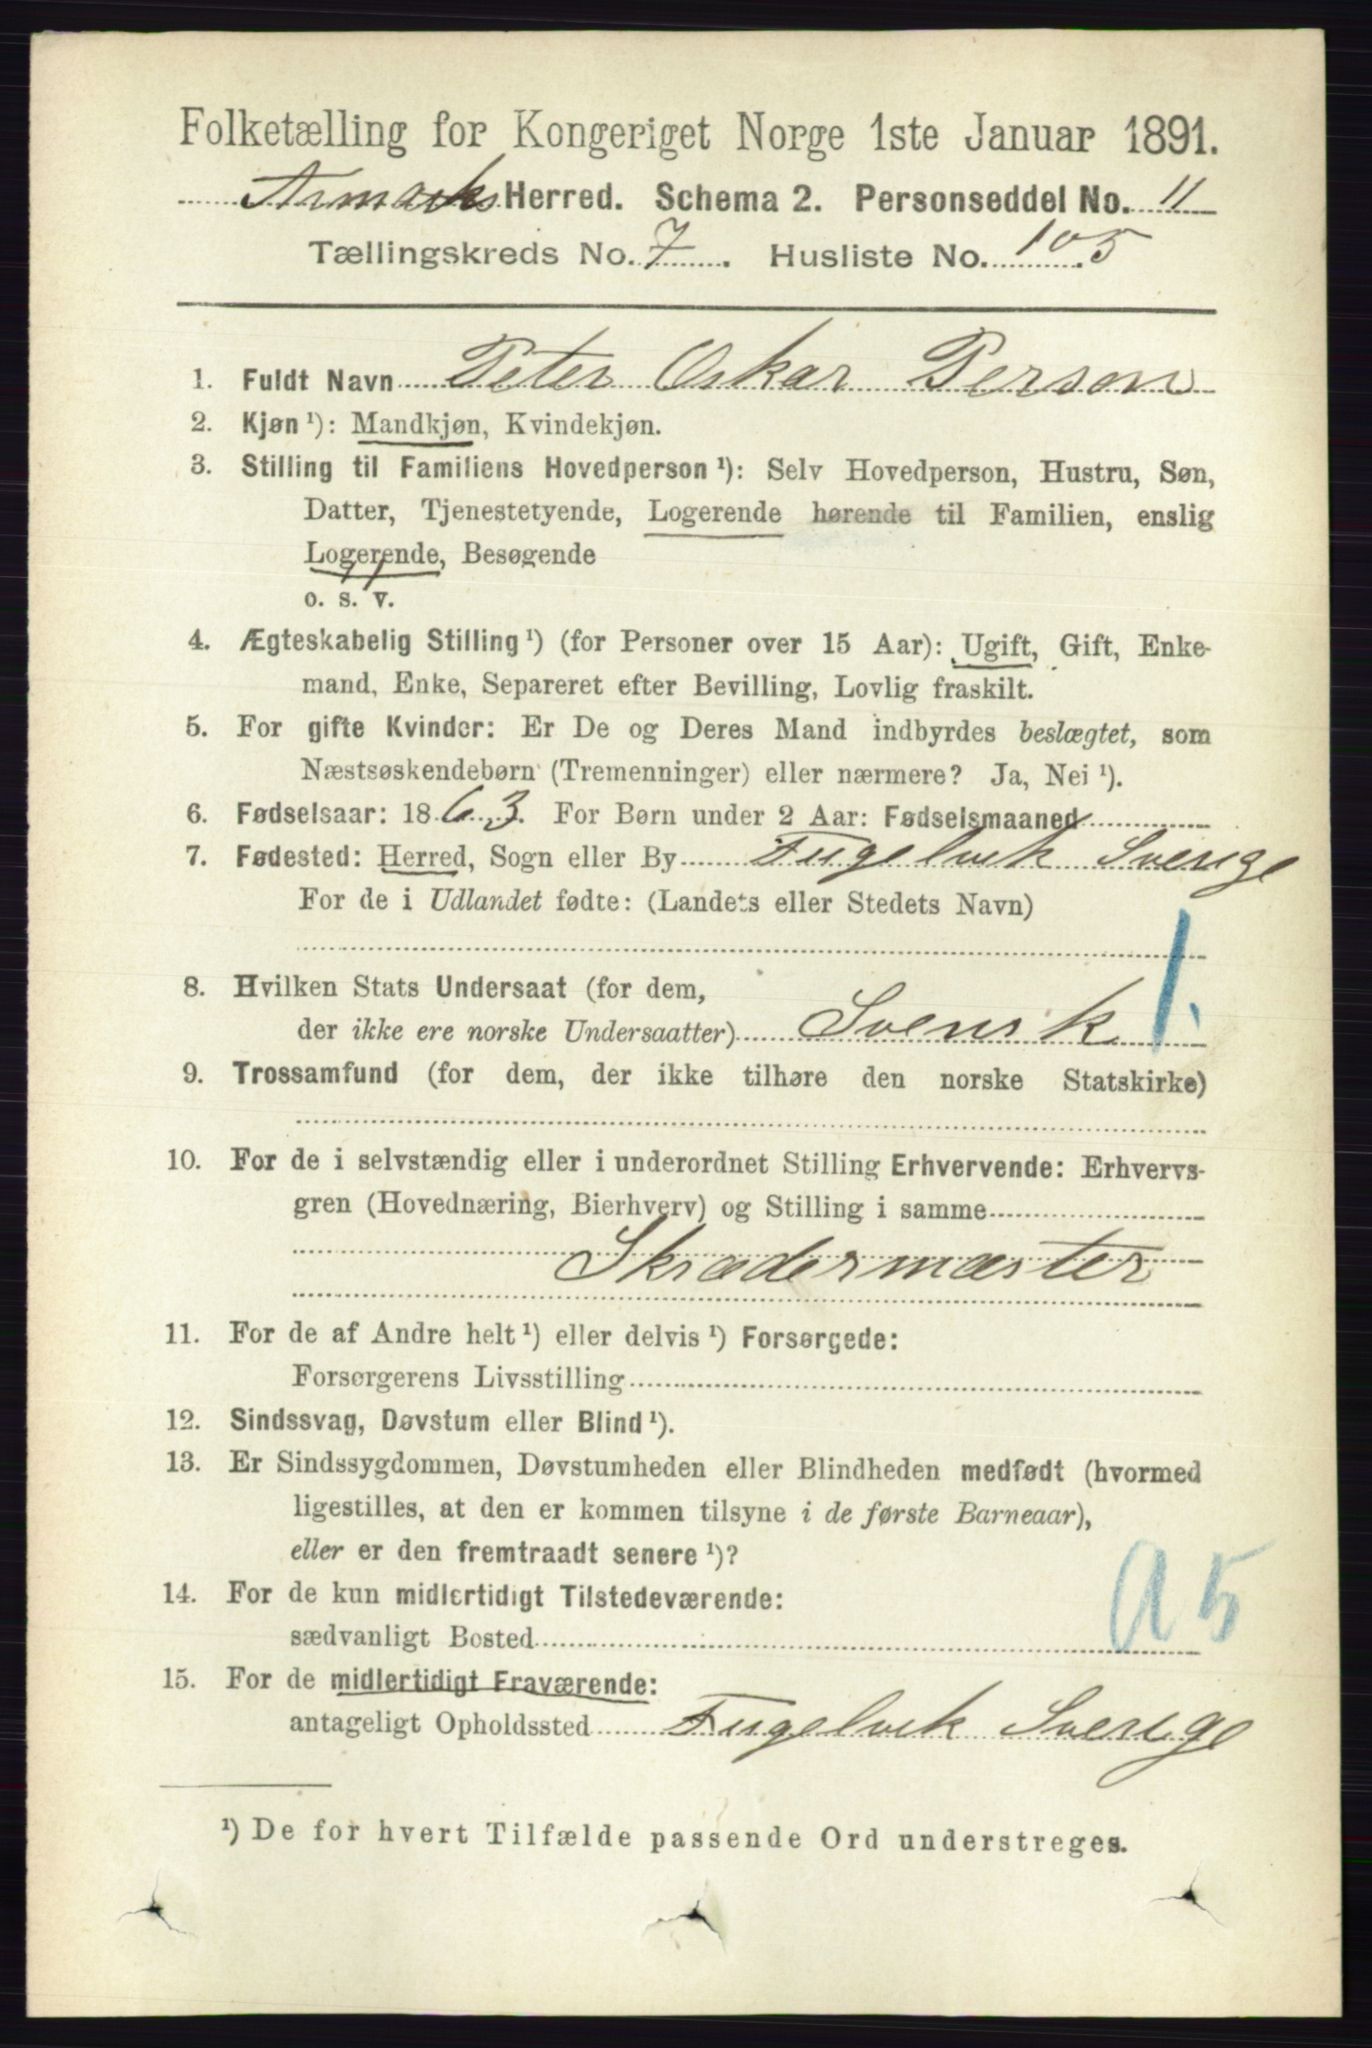 Folketælling for Kongeriget Norge 1ste Januar 1891.
Aremarks Herred. Schema 2. Personseddel No. 11
Tællingskreds No. 7. Husliste No. 105
1. Fuldt Navn Peter Oskar Person
2. Kjøn ¹): Mandkjøn, Kvindekjøn.
3. Stilling til Familiens Hovedperson ¹): Selv Hovedperson, Hustru, Søn,
Datter, Tjenestetyende, Logerende hørende til Familien, enslig
Logerende, Besøgende
o. s. v.
4. Ægteskabelig Stilling ¹) (for Personer over 15 Aar): Ugift, Gift, Enke-
mand, Enke, Separeret efter Bevilling, Lovlig fraskilt.
5. For gifte Kvinder: Er De og Deres Mand indbyrdes beslægtet, som
Næstsøskendebørn (Tremenninger) eller nærmere? Ja, Nei ¹).
6. Fødselsaar: 1863. For Børn under 2 Aar: Fødselsmaaned
7. Fødested: Herred, Sogn eller By Fugelvik Sverige
For de i Udlandet fødte: (Landets eller Stedets Navn)
1.
8. Hvilken Stats Undersaat (for dem,
der ikke ere norske Undersaatter) Svensk
9. Trossamfund (for dem, der ikke tilhøre den norske Statskirke)
10. For de i selvstændig eller i underordnet Stilling Erhvervende: Erhvervs-
gren (Hovednæring, Bierhverv) og Stilling i samme
Skrædermæster
11. For de af Andre helt ¹) eller delvis ¹) Forsørgede:
Forsørgerens Livsstilling
12. Sindssvag, Døvstum eller Blind ¹).
13. Er Sindssygdommen, Døvstumheden eller Blindheden medfødt (hvormed
ligestilles, at den er kommen tilsyne i de første Barneaar),
eller er den fremtraadt senere ¹)?
14. For de kun midlertidigt Tilstedeværende:
sædvanligt Bosted
a 5
15. For de midlertidigt Fraværende:
antageligt Opholdssted Fugelvik Sverige
¹) De for hvert Tilfælde passende Ord understreges.